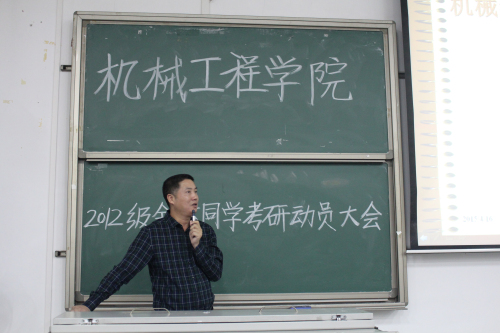 机械工程学院
机械
2012级全 同学考研动员大会